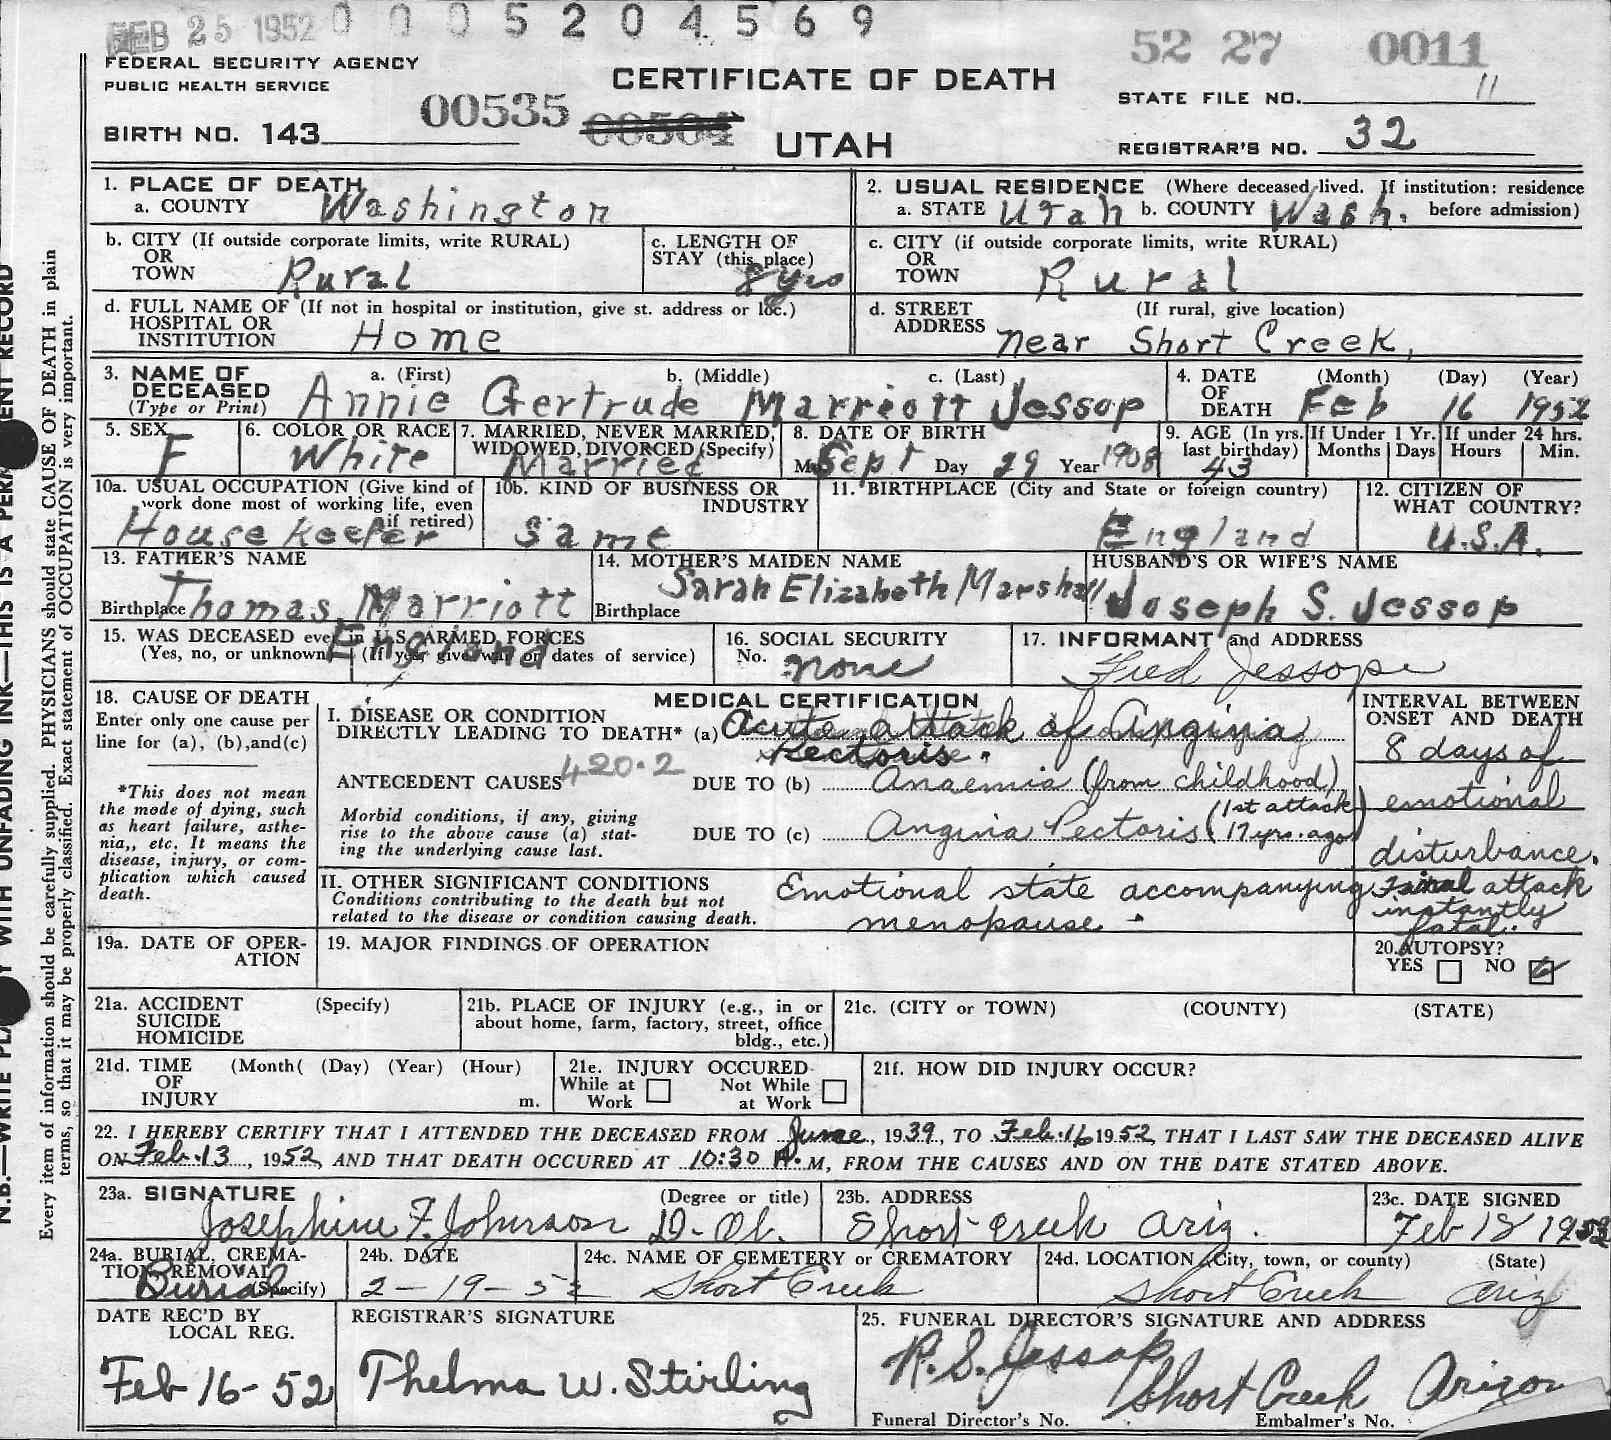 FEB 25 1952 0 0 0 5 2 0 4 5 6 9
52 27 0011
FEDERAL SECURITY AGENCY
PUBLIC HEALTH SERVICE
CERTIFICATE OF DEATH
STATE FILE NO. 11
BIRTH NO. 143
00535 00504
UTAH
REGISTRAR'S NO. 32
N.B.—WRITE PLAINLY WITH UNFADING INK—THIS IS A PERMANENT RECORD
Every item of information should be carefully supplied. PHYSICIANS should state CAUSE OF DEATH in plain
terms, so that it may be properly classified. Exact statement of OCCUPATION is very important.
1. PLACE OF DEATH
a. COUNTY Washington
2. USUAL RESIDENCE (Where deceased lived. If institution: residence
a. STATE Utah b. COUNTY Wash. before admission)
b. CITY (If outside corporate limits, write RURAL)
OR
TOWN Rural
c. LENGTH OF
STAY (this place)
8 yrs
c. CITY (if outside corporate limits, write RURAL)
OR
TOWN Rural
d. FULL NAME OF (If not in hospital or institution, give st. address or loc.)
HOSPITAL OR
INSTITUTION Home
d. STREET (If rural, give location)
ADDRESS near Short Creek,
3. NAME OF a. (First) b. (Middle) c. (Last)
DECEASED
(Type or Print) Annie Gertrude Marriott Jessop
4. DATE (Month) (Day) (Year)
OF
DEATH Feb 16 1952
5. SEX
F
6. COLOR OR RACE
White
7. MARRIED, NEVER MARRIED,
WIDOWED, DIVORCED (Specify)
Married
8. DATE OF BIRTH
Mo Sept Day 29 Year 1908
9. AGE (In yrs.
last birthday)
43
If Under 1 Yr.
Months Days
If under 24 hrs.
Hours Min.
10a. USUAL OCCUPATION (Give kind of
work done most of working life, even
if retired)
House keeper
10b. KIND OF BUSINESS OR
INDUSTRY
Same
11. BIRTHPLACE (City and State or foreign country)
England
12. CITIZEN OF
WHAT COUNTRY?
U.S.A.
13. FATHER'S NAME
Thomas Marriott
Birthplace
England
14. MOTHER'S MAIDEN NAME
Sarah Elizabeth Marshall
Birthplace
HUSBAND'S OR WIFE'S NAME
Joseph S. Jessop
15. WAS DECEASED ever in U.S. ARMED FORCES
(Yes, no, or unknown) (If yes give war or dates of service)
16. SOCIAL SECURITY
No. none
17. INFORMANT and ADDRESS
Fred Jessop
18. CAUSE OF DEATH
Enter only one cause per
line for (a), (b),and(c)
*This does not mean
the mode of dying, such
as heart failure, asthe-
nia,, etc. It means the
disease, injury, or com-
plication which caused
death.
MEDICAL CERTIFICATION
I. DISEASE OR CONDITION
DIRECTLY LEADING TO DEATH* (a) Acute attack of Angina
Pectoris.
ANTECEDENT CAUSES 420.2 DUE TO (b) Anaemia (from childhood)
Morbid conditions, if any, giving
rise to the above cause (a) stat-
ing the underlying cause last.
DUE TO (c) Angina Pectoris (1st attack
17 yrs. ago)
II. OTHER SIGNIFICANT CONDITIONS
Conditions contributing to the death but not
related to the disease or condition causing death.
Emotional state accompanying
menopause.
INTERVAL BETWEEN
ONSET AND DEATH
8 days of
emotional
disturbance.
attack
instantly
fatal.
19a. DATE OF OPER-
ATION
19. MAJOR FINDINGS OF OPERATION
20. AUTOPSY?
YES NO
21a. ACCIDENT (Specify)
SUICIDE
HOMICIDE
21b. PLACE OF INJURY (e.g., in or
about home, farm, factory, street, office
bldg., etc.)
21c. (CITY or TOWN) (COUNTY) (STATE)
21d. TIME (Month( (Day) (Year) (Hour)
OF
INJURY m.
21e. INJURY OCCURED
While at Not While
Work at Work
21f. HOW DID INJURY OCCUR?
22. I HEREBY CERTIFY THAT I ATTENDED THE DECEASED FROM June, 1939, TO Feb. 16 1952, THAT I LAST SAW THE DECEASED ALIVE
ON Feb. 13, 1952, AND THAT DEATH OCCURED AT 10:30 A. M, FROM THE CAUSES AND ON THE DATE STATED ABOVE.
23a. SIGNATURE (Degree or title)
Josephine F. Johnson D. Ob.
23b. ADDRESS
Short Creek Ariz.
23c. DATE SIGNED
Feb 18 1952
24a. BURIAL, CREMA-
TION, REMOVAL
(Specify)
Burial
24b. DATE
2-19-52
24c. NAME OF CEMETERY or CREMATORY
Short Creek
24d. LOCATION (City, town, or county) (State)
Short Creek Ariz
DATE REC'D BY
LOCAL REG.
Feb 16-52
REGISTRAR'S SIGNATURE
Thelma W. Stirling
25. FUNERAL DIRECTOR'S SIGNATURE AND ADDRESS
R. S. Jessop
Short Creek Arizona
Funeral Director's No. Embalmer's No.